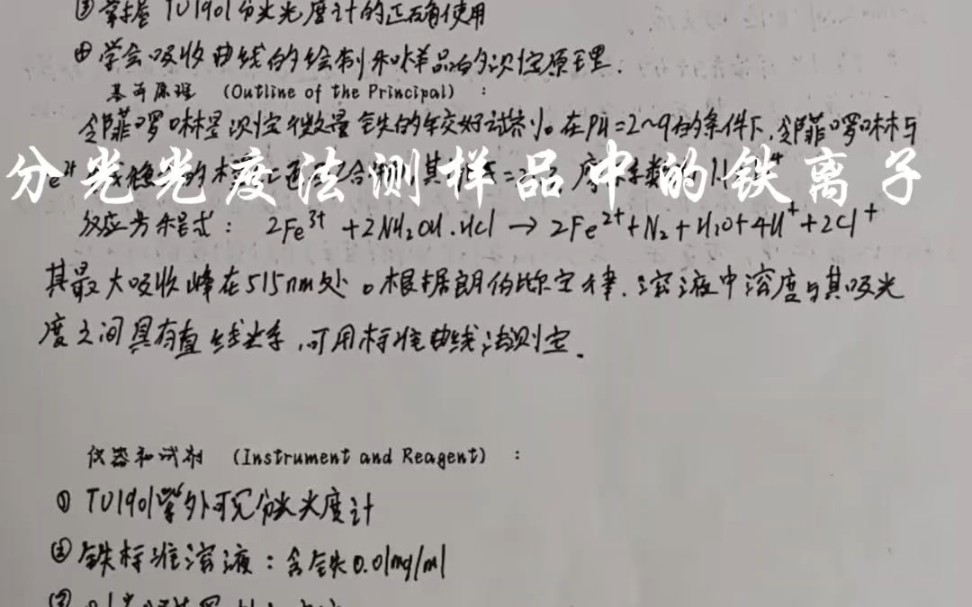 ③掌握TU1901分光光度计的正确使用
④学会吸收曲线的绘制和样品的测定原理.
基本原理 (Outline of the Principal) :
邻菲啰啉是测定微量铁的较好试剂。在PH=2~9的条件下,邻菲啰啉与
分光光度法测样品中的铁离子
反应方程式: 2Fe³⁺ +2NH₂OH·HCl → 2Fe²⁺+N₂+H₂O+4H⁺+2Cl⁺
其最大吸收峰在515nm处。根据朗伯比尔定律,溶液中溶度与其吸光
度之间具有直线关系,可用标准曲线法测定.
仪器和试剂 (Instrument and Reagent) :
① TU1901紫外可见分光光度计
②铁标准溶液:含铁0.01mg/ml